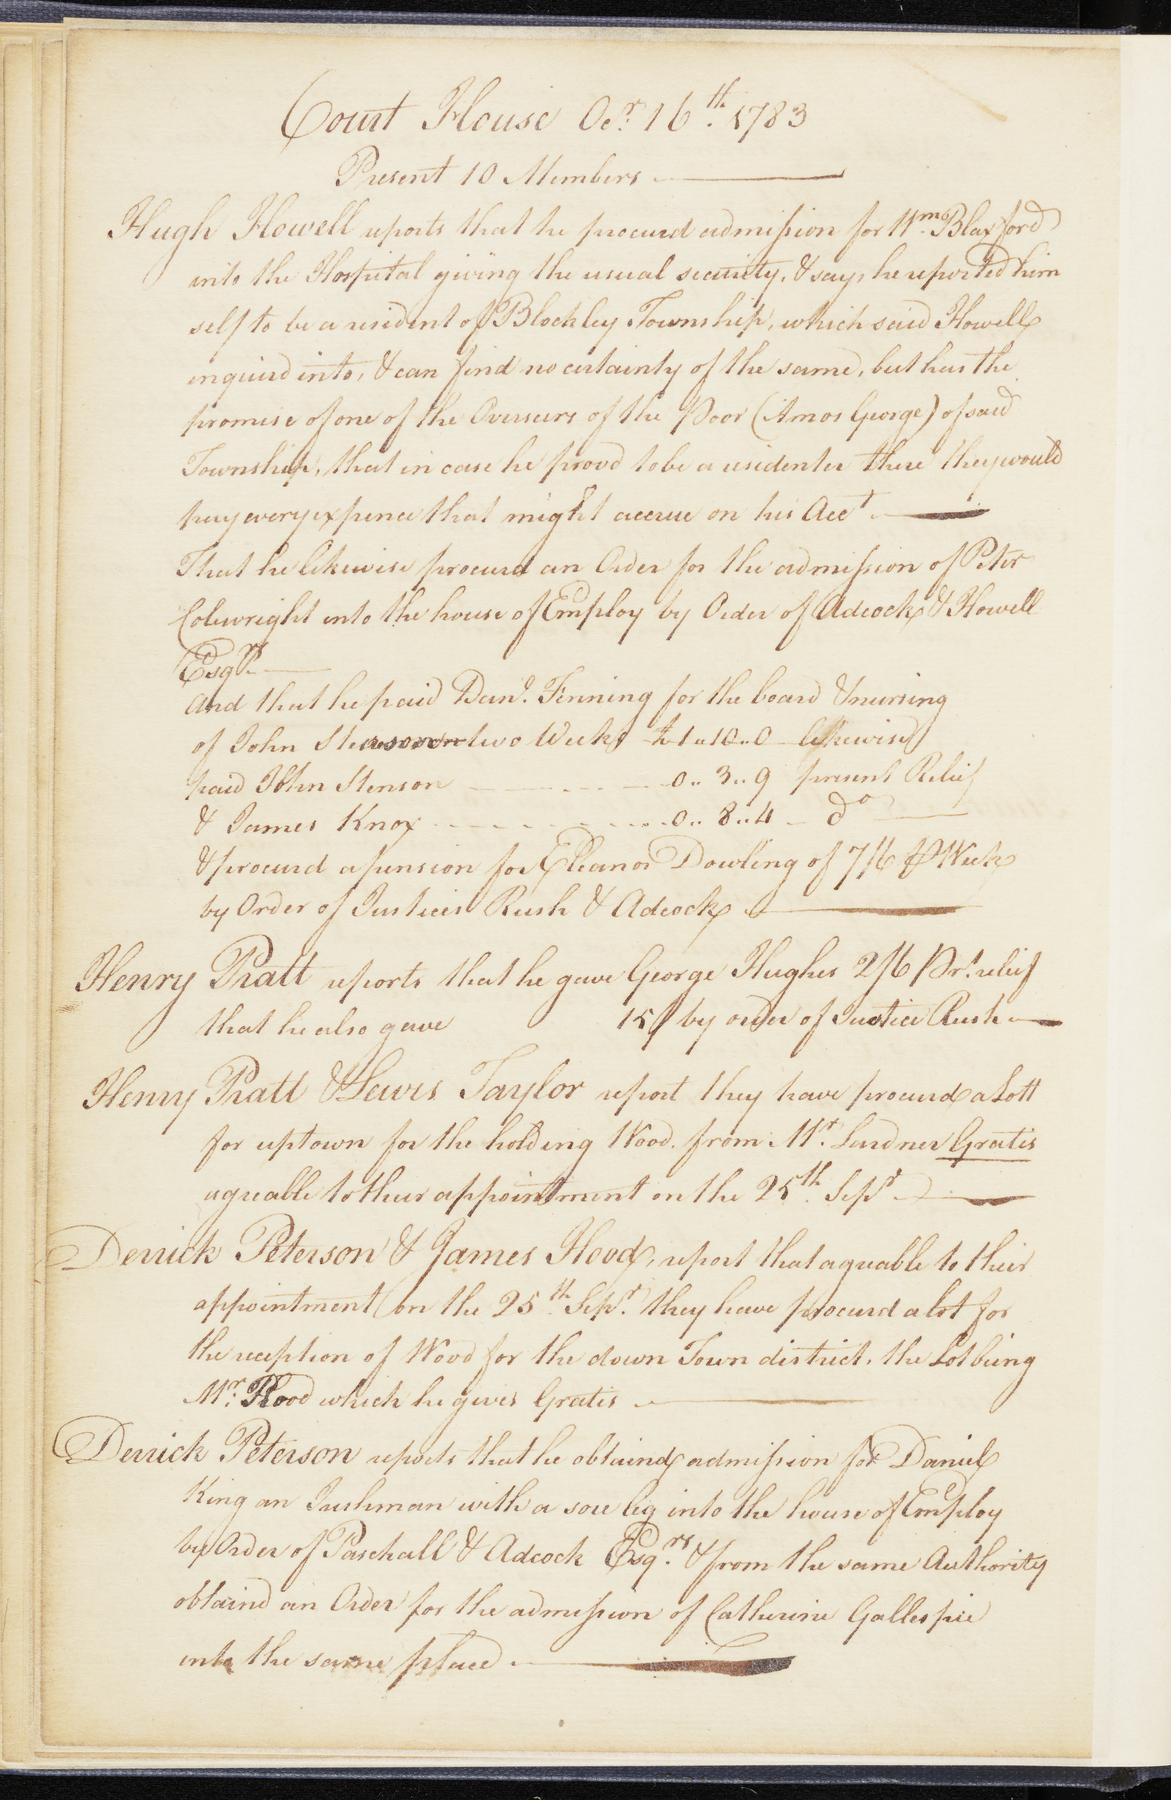 Court House Ocr. 16th. 1783
Present 10 Members
Hugh Howell reports that he procurd admission for Wm. Blaxford
into the Hospital giving the usual security, & says he reported him
self to be a resident of Blockley Township, which said Howell
inquird into, & can find no certainty of the same, but has the
promise of one of the Overseers of the Poor (Amos George) of said
Township, that in case he provd to be a residenter there they would
pay every expence that might accrue on his Acct.
That he likewise procurd an Order for the admission of Peter
Colewright into the house of Employ by Order of Adcock & Howell
Esqrs.
And that he paid Danl. Fenning for the board & nursing
of John two Weeks £1..10..0 likewise
paid John Stenson 0..3..9 present Relief
& James Knox 0..8..4 do
& procurd a pension for Eleanor Dowling of 7/6 Week
by Order of Justices Rush & Adcock
Henry Pratt reports that he gave George Hughes 2/6 Pr. relief
that he also gave 15/ by order of Justice Rush
Henry Pratt & Lewis Taylor report they have procurd a Lott
for uptown for the holding Wood. from Mr. Lardner Gratis
agreable to their appointment on the 25th. Sept.
Derrick Peterson & James Hood, report that agreable to their
appointment on the 25th. Sept. they have procurd a lot for
the reception of Wood for the down Town district, the Lot being
Mr. Rood which he gives Gratis
Derrick Peterson reports that he obtaind admission for Daniel
King an Irishman with a sore leg into the house of Employ
by Order of Paschall & Adcock Esqrs. & from the same Authority
obtaind an Order for the admission of Catherine Gallespie
into the same place.